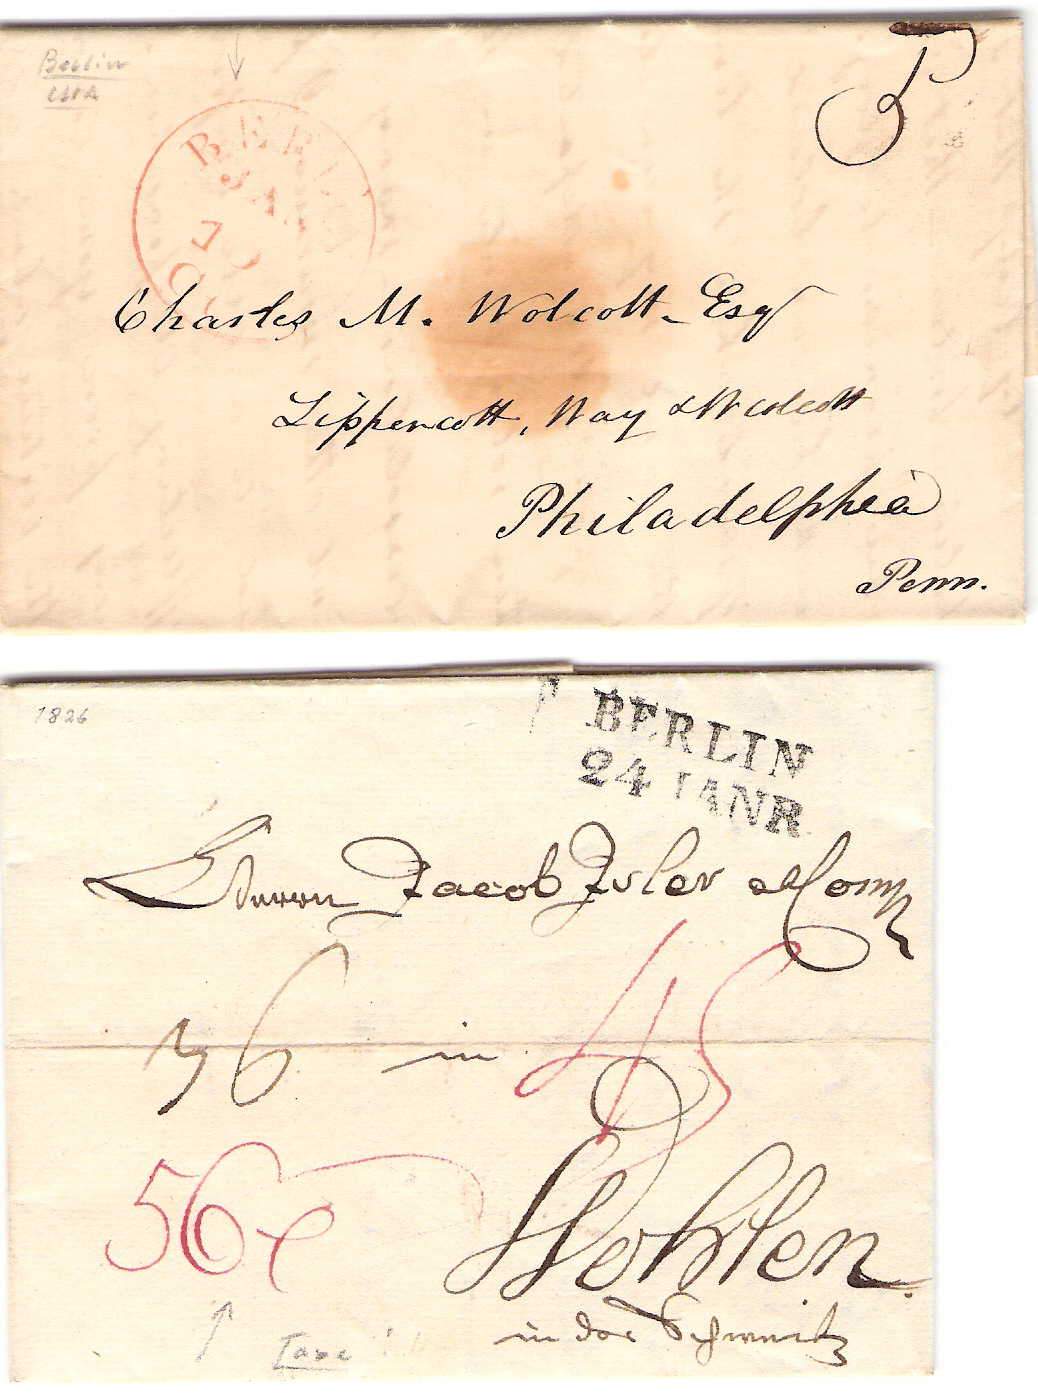 Berlin
USA
BERLIN
JAN
7
O
5
Charles M. Wolcott Esqr
Lippencott, Way & Wolcott
Philadelphia
Penn.
1826
BERLIN
24 IANR
Herrn Jacob Isler & Comp
36 in 45
56x
Wohlen
in der Schweitz
Taxe